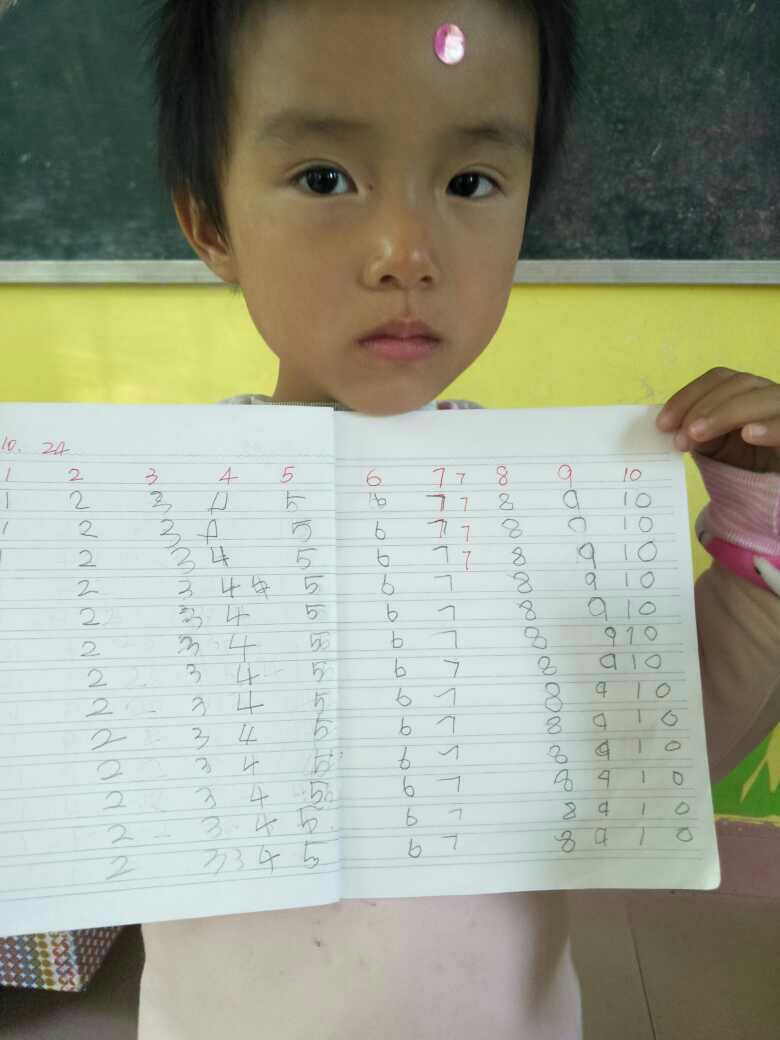 10. 24
1 2 3 4 5 6 7 7 8 9 10
1 2 3 4 5 6 7 7 8 9 10
1 2 3 4 5 6 7 7 8 9 10
2 3 4 5 6 7 7 8 9 10
2 3 4 4 5 6 7 8 9 10
2 3 4 5 6 7 8 9 10
2 3 4 5 6 7 8 9 10
2 3 4 5 6 7 8 9 10
2 3 4 5 6 7 8 9 10
2 3 4 5 6 7 8 9 10
2 3 4 5 6 7 8 9 10
2 3 4 5 6 7 8 9 10
2 3 4 5 6 7 8 9 10
2 3 3 4 5 6 7 8 9 10